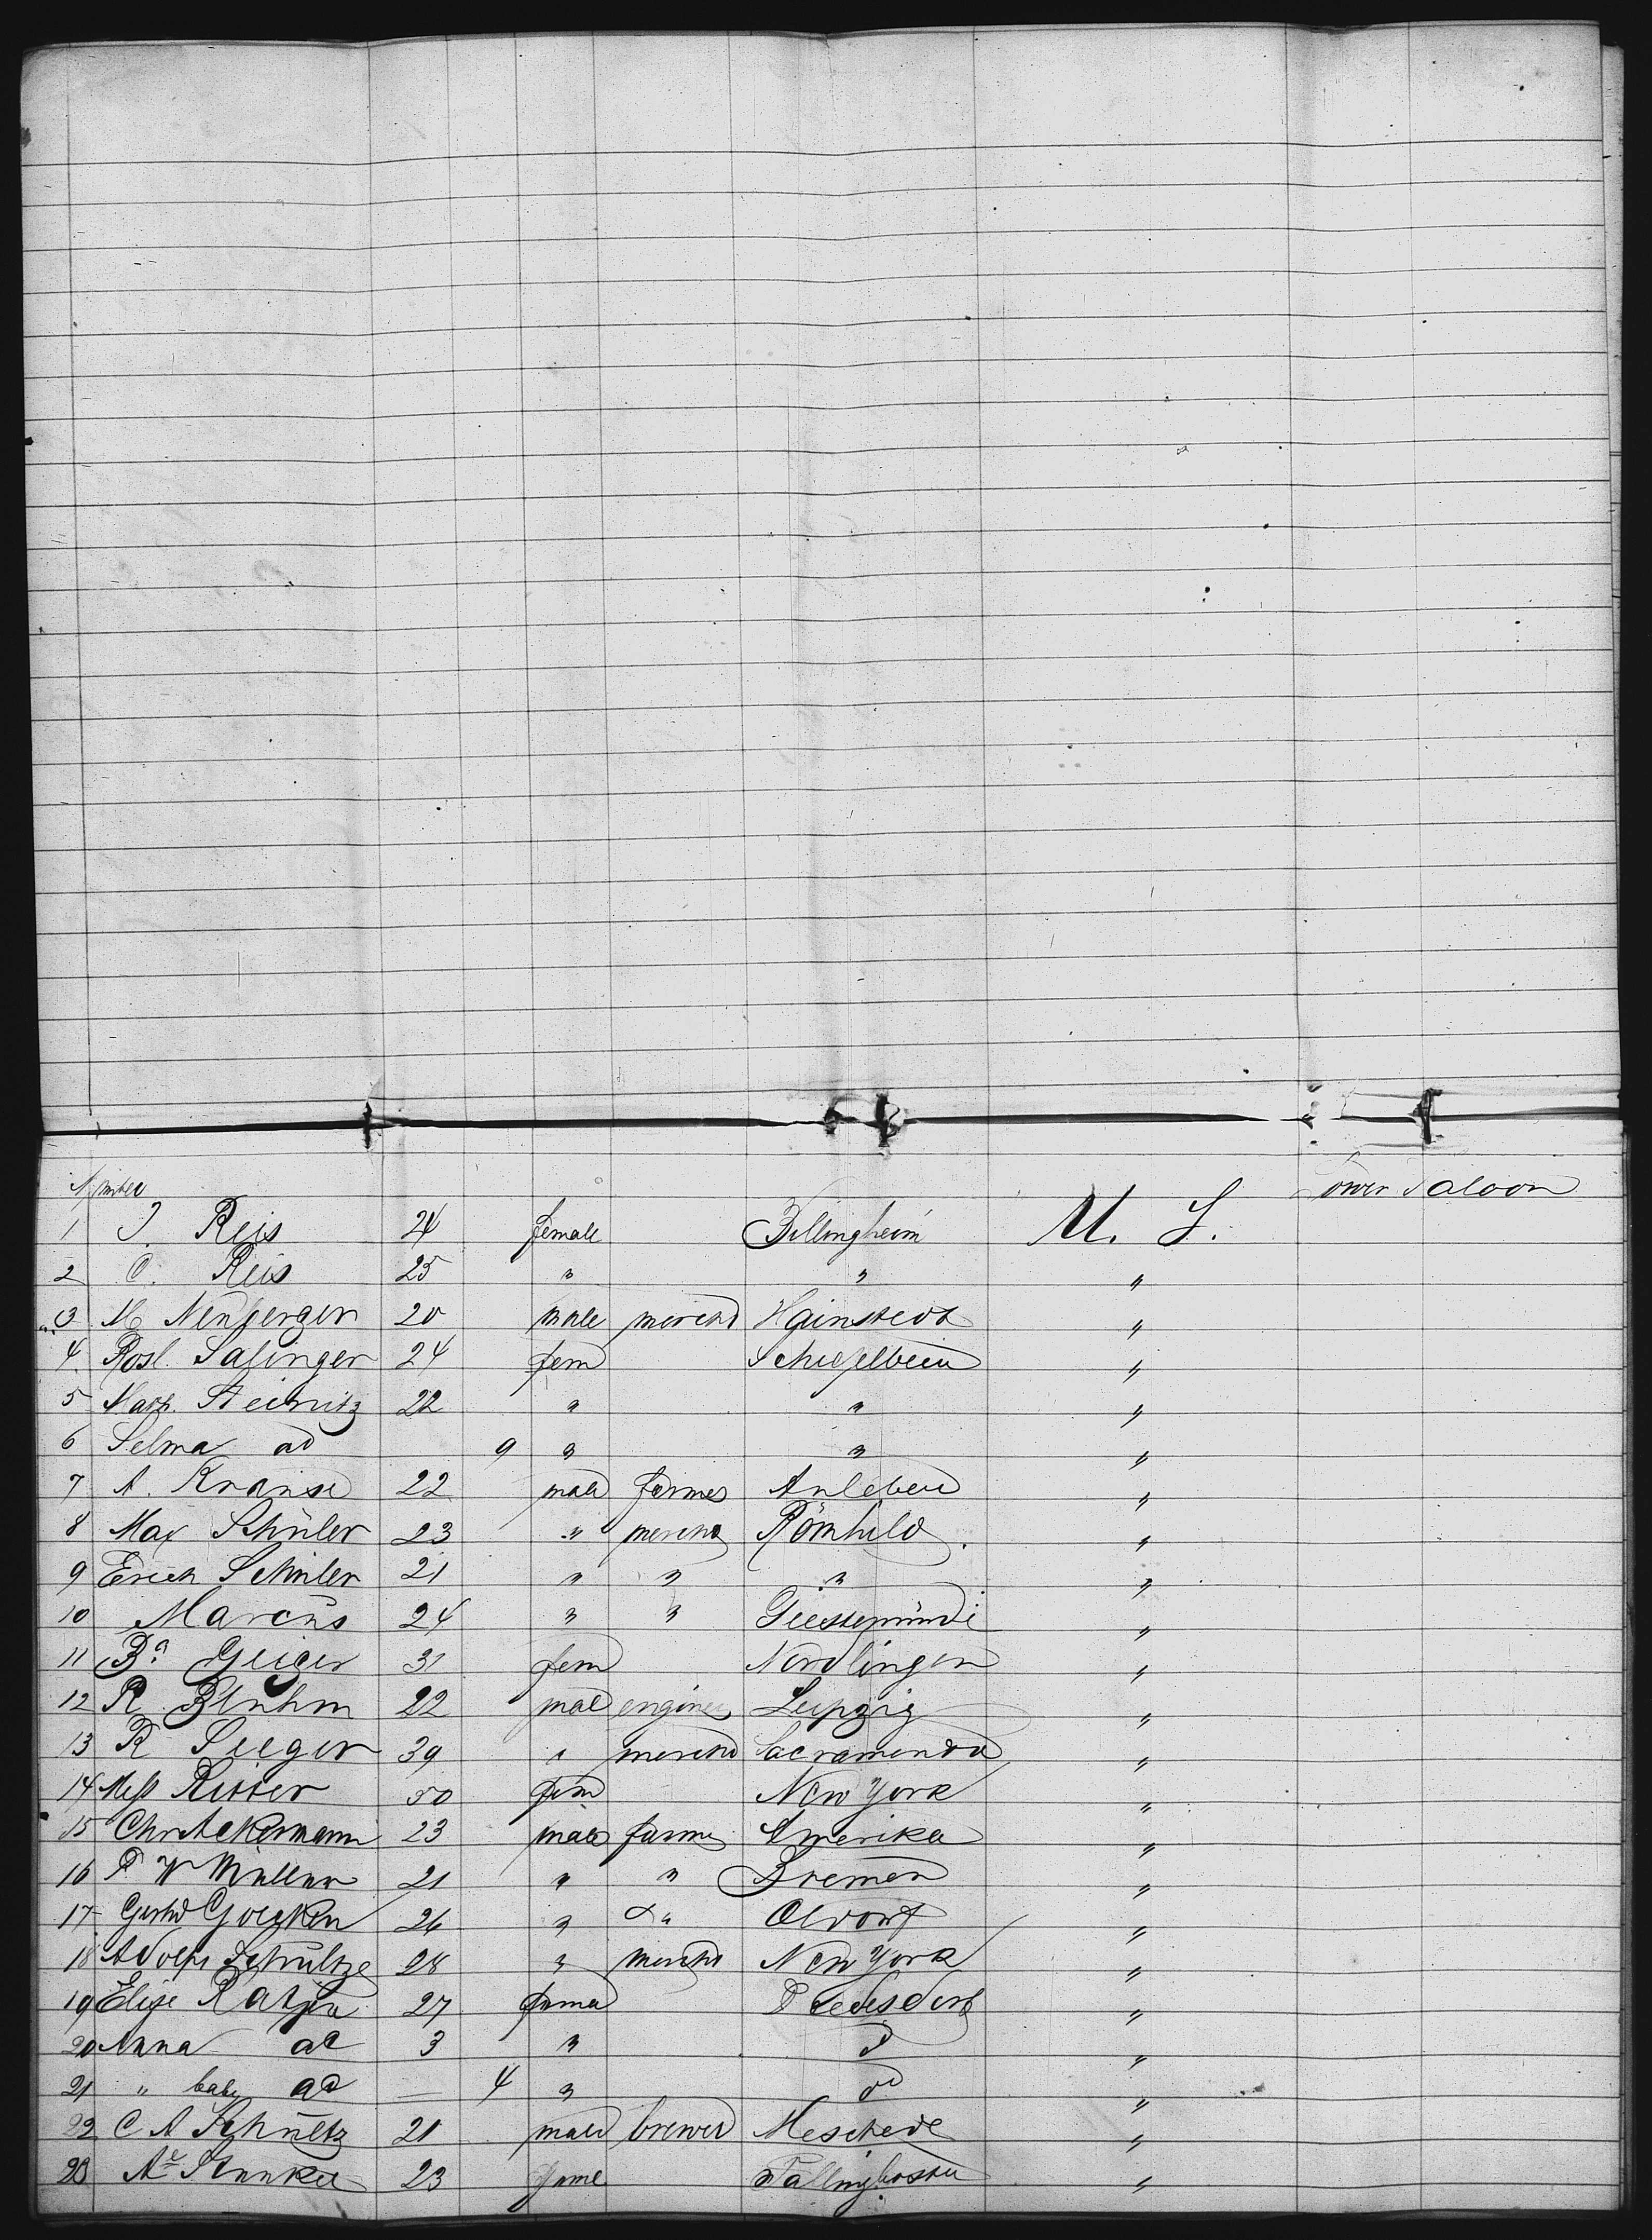 Number Lower Saloon
1 J. Reis 24 female Billingheim U. S.
2 C. Reis 25 " " "
3 M Neuberger 20 male mercht Hainstedt "
4 Rosl. Salinger 24 fem Schiefelbein "
5 Marg. Steinitz 22 " " "
6 Selma do 9 " " "
7 A. Krause 22 male farmer Anleben "
8 Max Schüler 23 " mercht Römhild "
9 Erich Schüler 21 " " " "
10 Marcus 24 " " Geestemünde "
11 Ba Geiger 31 fem Nordlingen "
12 R. Bluhm 22 male engineer Leipzig "
13 R Seeger 39 " mercht Sacramento "
14 Miss Ritter 50 fem New York "
15 Chr Ackermann 23 male farmer Amerika "
16 P W Müller 21 " " Bremen "
17 Gerhd 26 " do "
18 Adolph Schultze 28 " mercht New York "
19 Elise Ratjen 27 female "
20 Anna do 3 " do "
21 " baby do — 4 " do "
22 C A Schultz 21 male brewer Meschede "
23 23 female Fallingbostel "